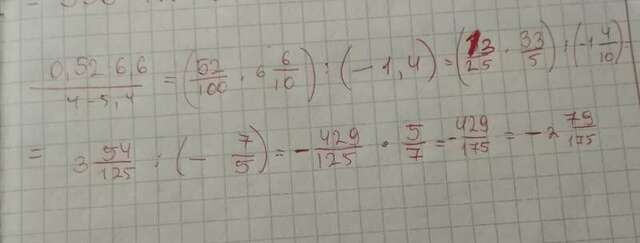 0,52 6,6 / 4-5,4 = (52/100 · 6 6/10) : (-1,4) = (13/25 · 33/5) : (-1 4/10)
= 3 54/125 : (- 7/5) = - 429/125 · 5/7 = - 429/175 = -2 79/175